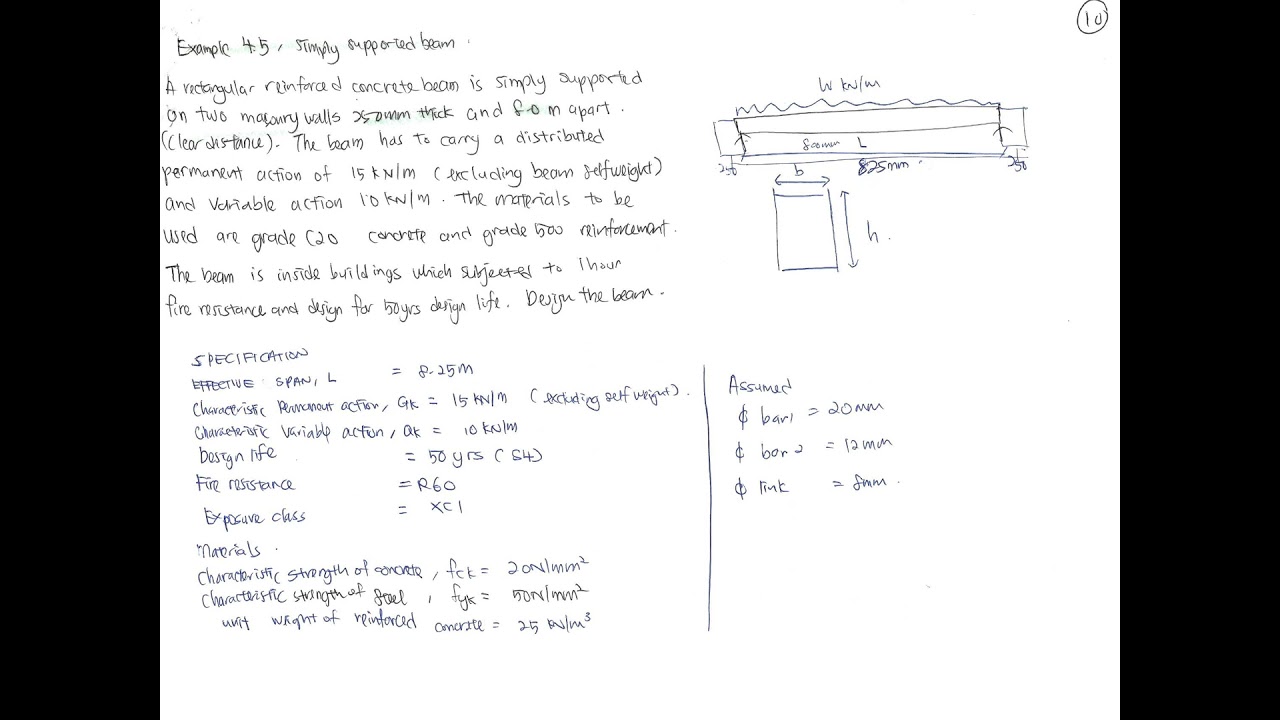 10
Example 4.5, simply supported beam.
A rectangular reinforced concrete beam is simply supported
on two masonry walls 250mm thick and 8.0 m apart.
(Clear distance). The beam has to carry a distributed
permanent action of 15 kN/m (excluding beam selfweight)
and variable action 10 kN/m. The materials to be
used are grade C20 concrete and grade 500 reinforcement.
The beam is inside buildings which subjected to 1 hour
fire resistance and design for 50yrs design life. Design the beam.
W kN/m
800mm L
250
825mm.
250
b
h.
SPECIFICATION
EFFECTIVE SPAN, L = 8.25m
Characteristic Permanent action, Gk = 15 kN/m (excluding self weight).
Characteristic Variable action, Qk = 10 kN/m
Design life = 50 yrs (S4)
Fire resistance = R60
Exposure class = XC1
Materials.
Characteristic strength of concrete, fck = 20N/mm²
Characteristic strength of steel, fyk = 50N/mm²
unit weight of reinforced concrete = 25 kN/m³
Assumed
ϕ bar1 = 20mm
ϕ bar 2 = 12mm
ϕ link = 8mm.